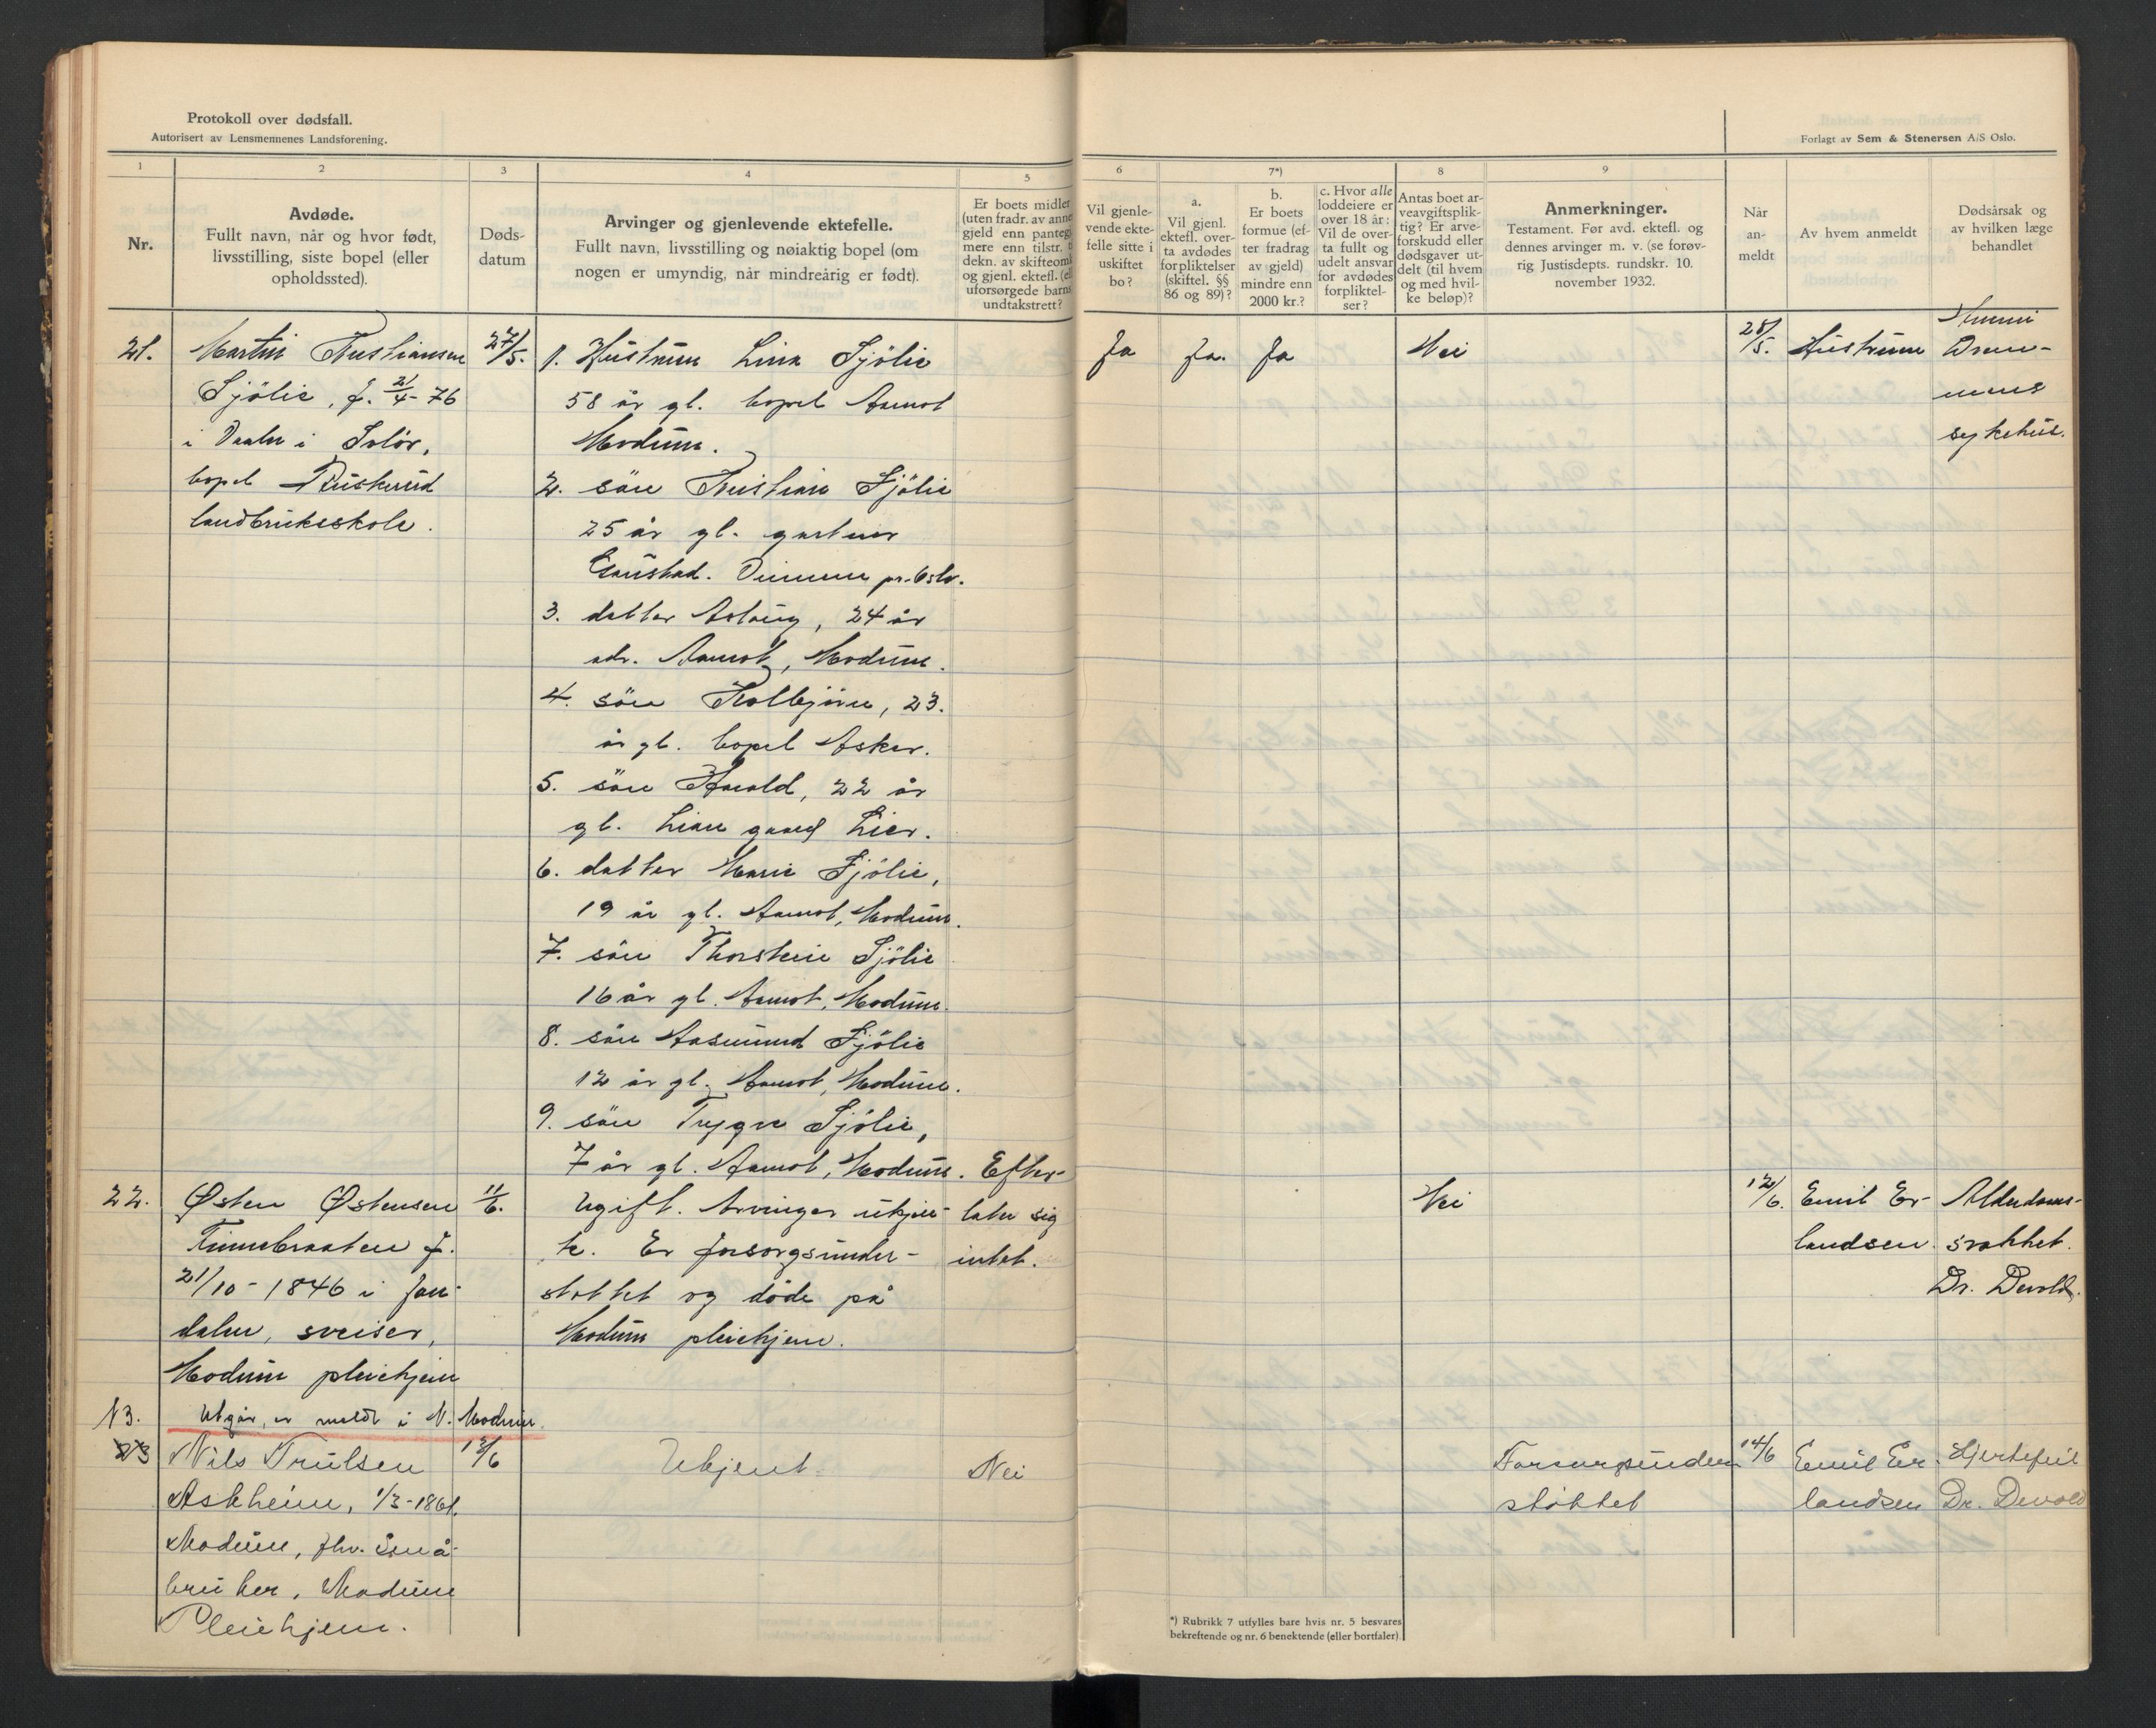 Protokoll over dødsfall.
Autorisert av Lensmennenes Landsforening.
Forlagt av Sem & Stenersen A/S Oslo.
1
2
3
4
5
6
7*)
8
9
Nr.
Avdøde.
Fullt navn, når og hvor født,
livsstilling, siste bopel (eller
opholdssted).
Døds-
datum
Arvinger og gjenlevende ektefelle.
Fullt navn, livsstilling og nøiaktig bopel (om
nogen er umyndig, når mindreårig er født).
Er boets midler
(uten fradr. av anne
gjeld enn panteg
mere enn tilstr. t
dekn. av skifteomk
og gjenl. ektefl. (el
uforsørgede barns
undtakstrett?
Vil gjenle-
vende ekte-
felle sitte i
uskiftet
bo?
a.
Vil gjenl.
ektefl. over-
ta avdødes
forpliktelser
(skiftel. §§
86 og 89)?
b.
Er boets
formue (ef-
ter fradrag
av gjeld)
mindre enn
2000 kr.?
c. Hvor alle
loddeiere er
over 18 år:
Vil de over-
ta fullt og
udelt ansvar
for avdødes
forpliktel-
ser?
Antas boet ar-
veavgiftsplik-
tig? Er arve-
forskudd eller
dødsgaver ut-
delt (til hvem
og med hvil-
ke beløp)?
Anmerkninger.
Testament. Før avd. ektefl. og
dennes arvinger m. v. (se forøv-
rig Justisdepts. rundskr. 10.
november 1932.
Når
an-
meldt
Av hvem anmeldt
Dødsårsak og
av hvilken læge
behandlet
21.
Martin Kristiansen
Fjölie, f. 21/4-76
i Vaaler i Solör,
bopel Buskerud
landbruksskole.
27/5.
1. Hustruen Lina Fjölie
58 år gl. bopel Aamot
Modum.
2. sön Kristian Fjölie
25 år gl. gartner
Gaustad. Vinderen pr. Oslo.
3. datter Aslaug, 24 år
adr. Aamot, Modum.
4. sön Kolbjörn, 23.
år gl. bopel Asker.
5. sön Harald, 22 år
gl. Lian gaard Lier.
6. datter Marie Fjölie,
19 år gl. Aamot, Modum.
7. sön Thorstein Fjölie
16 år gl. Aamot, Modum.
8. sön Aasmund Fjölie
12 år gl. Aamot, Modum.
9. sön Trygve Fjölie,
7 år gl. Aamot, Modum.
Ja
Ja.
Ja
Nei
28/5.
Hustruen
Dram-
mens
sykehus.
22.
Østen Østensen
Finnebraaten f.
21/10-1846 i Jon-
dalen, sveiser,
Modum pleiehjem
11/6.
Ugift. Arvinger ukjen-
te. Er forsorgsunder-
støttet og döde på
Modum pleiehjem.
Efter-
later sig
intet.
Nei
12/6.
Emil Er-
landsen.
Alderdoms-
svakhet.
Dr. Devold.
13.
Utgår, er meldt i N. Modum.
23
Nils Trulsen
Askheim, 1/3-1861.
Modum, fhv. små-
bruker, Modum
Pleiehjem.
12/6
Ukjent.
Nei
Forsorgsunder-
støttet
14/6
Emil Er-
landsen
Hjertefeil
Dr. Devold
*) Rubrikk 7 utfylles bare hvis nr. 5 besvares
bekreftende og nr. 6 benektende (eller bortfaler)